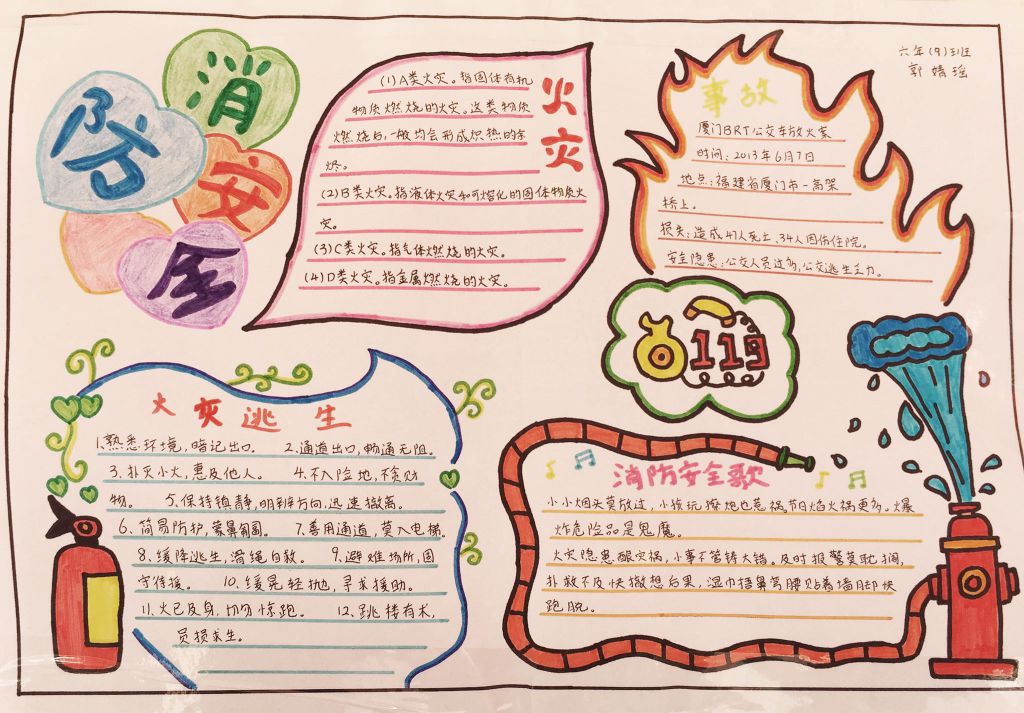 消
防
安
全
火灾
(1)A类火灾。指固体有机
物质燃烧的火灾。这类物质
燃烧后,一般均会形成炽热的余
烬。
(2)B类火灾。指液体火灾和可熔化的固体物质火
灾。
(3)C类火灾。指气体燃烧的火灾。
(4)D类火灾。指金属燃烧的火灾。
六年(9)班
郭婧瑶
事故
厦门BRT公交车放火案
时间:2013年6月7日
地点:福建省厦门市一高架
桥上。
损失:造成47人死亡、34人因伤住院。
安全隐患:公交人员过多,公交逃生乏力。
119
火灾逃生
1.熟悉环境,暗记出口。 2.通道出口,畅通无阻。
3.扑灭小火,惠及他人。 4.不入险地,不贪财
物。 5.保持镇静,明辨方向,迅速撤离。
6.简易防护,蒙鼻匍匐。 7.善用通道,莫入电梯。
8.缓降逃生,滑绳自救。 9.避难场所,固
守待援。 10.缓晃轻抛,寻求援助。
11.火已及身,切勿惊跑。 12.跳楼有术,
员损求生。
消防安全歌
小小烟头莫放过,小孩玩擦炮也惹祸,节日焰火祸更多。爆
炸危险品是鬼魔。
火灾隐患酿灾祸,小事不管铸大错。及时报警莫耽搁,
扑救不及快撤想后果,湿巾捂鼻弯腰贴着墙角却快
跑脱。